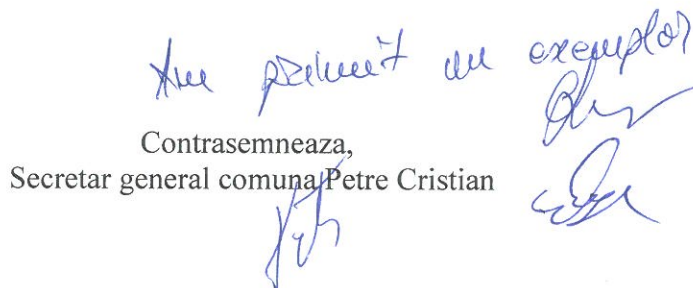 Am primit un exemplar
Contrasemneaza,
Secretar general comuna Petre Cristian